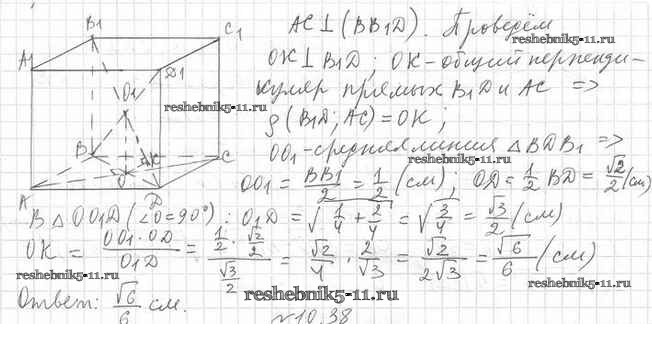 B1
C1
A1
D1
O1
B
C
K
O
A
D
AC⊥(BB1D). Проведём
OK⊥B1D; OK-общий перпенди-
куляр прямых B1D и AC =>
ρ(B1D; AC)=OK;
OO1-средняя линия △BDB1 =>
OO1 = BB1/2 = 1/2 (см); OD = 1/2 BD = √2/2 (см)
В △OO1D (∠O=90°): O1D = √(1/4 + 2/4) = √(3/4) = √3/2 (см)
OK = (OO1·OD)/O1D = (1/2 · √2/2)/(√3/2) = √2/4 · 2/√3 = √2/(2√3) = √6/6 (см)
Ответ: √6/6 см.
№10.38
reshebnik5-11.ru
reshebnik5-11.ru
reshebnik5-11.ru
reshebnik5-11.ru
reshebnik5-11.ru
reshebnik5-11.ru